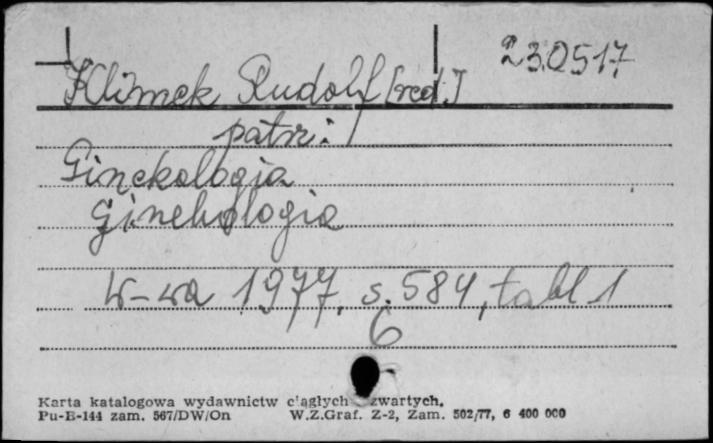 230517
Klimek Rudolf [red.]
patrz:
Ginekologia
Ginekologia
W-wa 1977, s. 584, tabl 1
6
Karta katalogowa wydawnictw ciągłych zwartych.
Pu-B-144 zam. 567/DW/On W.Z.Graf. Z-2, Zam. 502/77, 6 400 000